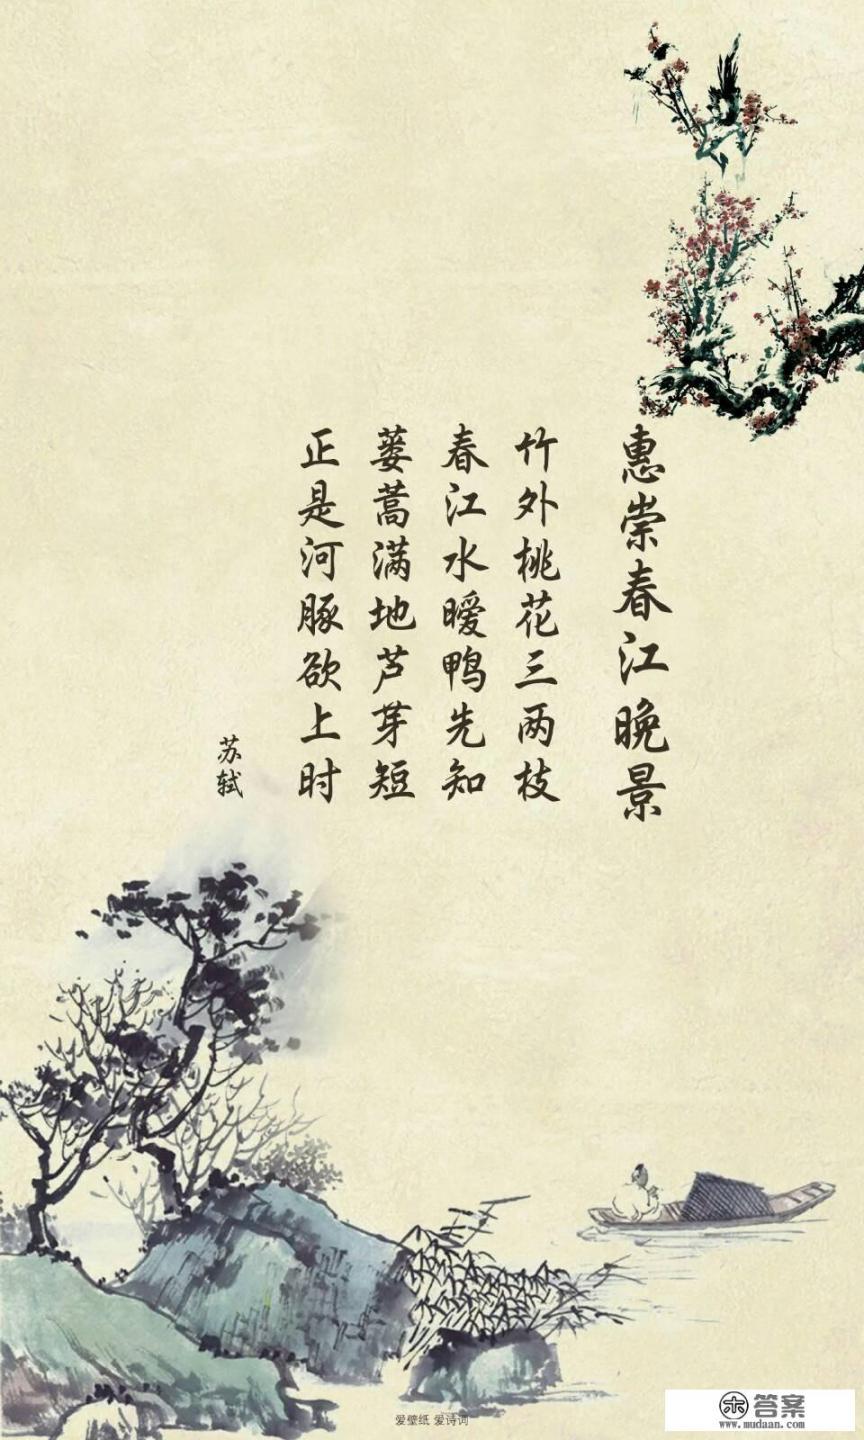 惠崇春江晚景
竹外桃花三两枝
春江水暧鸭先知
蒌蒿满地芦芽短
正是河豚欲上时
苏轼
爱壁纸 爱诗词
答案
www.mudaan.com